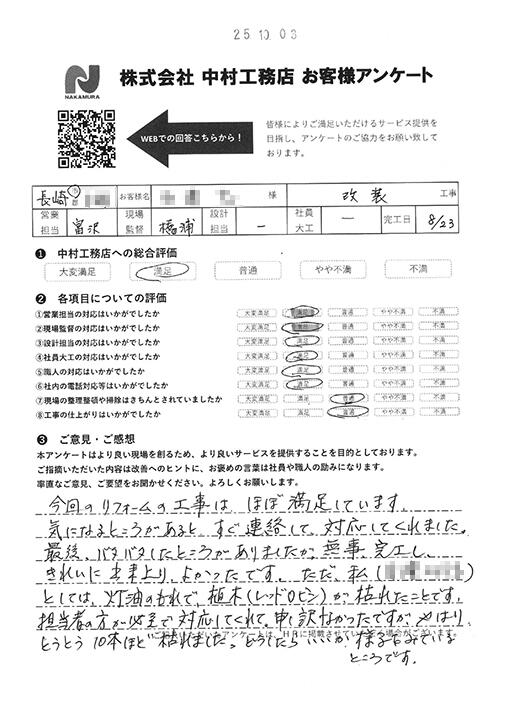 25.10.03
NAKAMURA
株式会社 中村工務店 お客様アンケート
WEBでの回答こちらから!
皆様によりご満足いただけるサービス提供を
目指し、アンケートのご協力をお願い致して
おります。
長崎 市 郡 お客様名 様 改装 工事
営業担当 冨沢 現場監督 橋浦 設計担当 ー 社員大工 ー 完工日 8/23
❶ 中村工務店への総合評価
大変満足 満足 普通 やや不満 不満
❷ 各項目についての評価
①営業担当の対応はいかがでしたか 大変満足 満足 普通 やや不満 不満
②現場監督の対応はいかがでしたか 大変満足 満足 普通 やや不満 不満
③設計担当の対応はいかがでしたか 大変満足 満足 普通 やや不満 不満
④社員大工の対応はいかがでしたか 大変満足 満足 普通 やや不満 不満
⑤職人の対応はいかがでしたか 大変満足 満足 普通 やや不満 不満
⑥社内の電話対応等はいかがでしたか 大変満足 満足 普通 やや不満 不満
⑦現場の整理整頓や掃除はきちんとされていましたか 大変満足 満足 普通 やや不満 不満
⑧工事の仕上がりはいかがでしたか 大変満足 満足 普通 やや不満 不満
❸ ご意見・ご感想
本アンケートはより良い現場を創るため、より良いサービスを提供することを目的としております。
ご指摘いただいた内容は改善へのヒントに、お褒めの言葉は社員や職人の励みになります。
率直なご意見、ご要望をお聞かせください。よろしくお願いします。
今回のリフォームの工事は、ほぼ満足しています。
気になるところがあると、すぐ連絡して、対応してくれました。
最後、バタバタしたところがありましたが、無事完工し、
きれいに出来上り、よかったです。ただ、私(
としては、灯油のもれで、植木(レッドロビン)が枯れたことです。
担当者の方が必至で対応してくれて、申し訳なかったですが、やはり、
とうとう10本ほど枯れました。どうしたらいいか、様子をみている
ところです。
ご記入いただいたアンケートは、HPに掲載させていただく場合がございます。